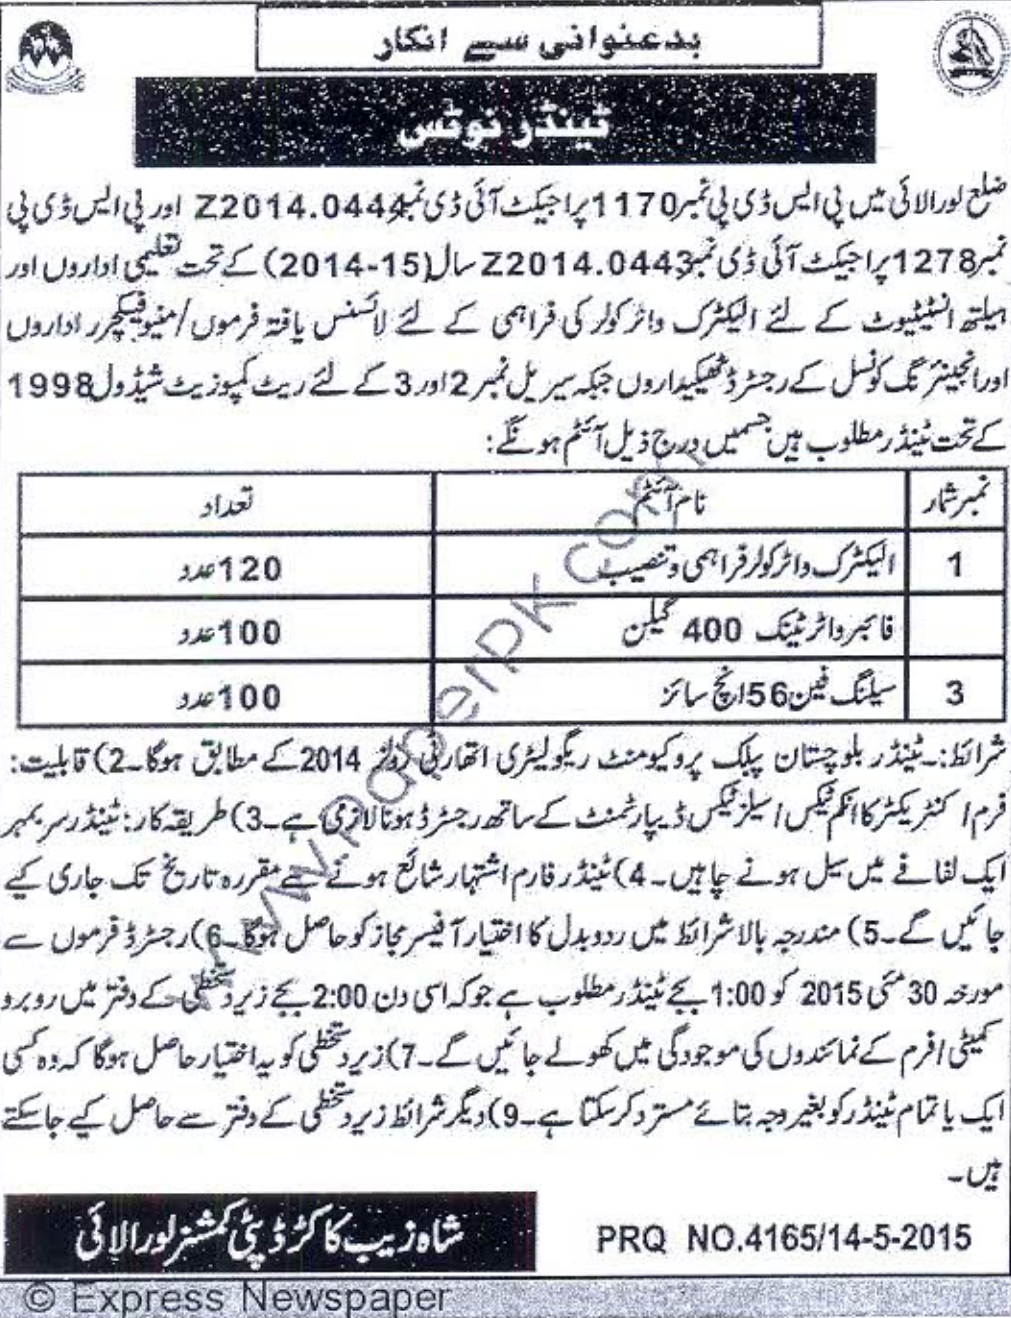 بدعنوانی سے انکار
ٹینڈر نوٹس
ضلع لورالائی میں پی ایس ڈی پی نمبر 1170 پراجیکٹ آئی ڈی نمبر Z2014.0444 اور پی ایس ڈی پی
نمبر 1278 پراجیکٹ آئی ڈی نمبر Z2014.0443 سال (2014-15) کے تحت تعلیمی اداروں اور
ہیلتھ انسٹیٹیوٹ کے لئے الیکٹرک واٹر کولر کی فراہمی کے لئے لائسنس یافتہ فرموں/منیوفیکچرر اداروں
اور انجینئرنگ کونسل کے رجسٹرڈ ٹھیکیداروں جبکہ سیریل نمبر 2 اور 3 کے لئے ریٹ کمپوزیٹ شیڈول 1998
کے تحت ٹینڈر مطلوب ہیں جسمیں درج ذیل آئٹم ہونگے:
نمبر شمار نام آئٹم تعداد
1 الیکٹرک واٹر کولر فراہمی و تنصیب 120 عدد
فائبر واٹر ٹینک 400 گیلن 100 عدد
3 سیلنگ فین 56 انچ سائز 100 عدد
شرائط:۔ ٹینڈر بلوچستان پبلک پروکیومنٹ ریگولیٹری اتھارٹی رولز 2014 کے مطابق ہوگا۔2) قابلیت:
فرم / کنٹریکٹر کا انکم ٹیکس / سیلز ٹیکس ڈیپارٹمنٹ کے ساتھ رجسٹرڈ ہونا لازمی ہے۔3) طریقہ کار: ٹینڈر سر بمہر
ایک لفافے میں سیل ہونے چاہیں۔4) ٹینڈر فارم اشتہار شائع ہونے سے مقررہ تاریخ تک جاری کیے
جائیں گے۔5) مندرجہ بالا شرائط میں ردوبدل کا اختیار آفیسر مجاز کو حاصل ہوگا۔6) رجسٹرڈ فرموں سے
مورخہ 30 مئی 2015 کو 1:00 بجے ٹینڈر مطلوب ہے جو کہ اسی دن 2:00 بجے زیر دستخطی کے دفتر میں روبرو
کمیٹی / فرم کے نمائندوں کی موجودگی میں کھولے جائیں گے۔7) زیر دستخطی کو یہ اختیار حاصل ہوگا کہ وہ کسی
ایک یا تمام ٹینڈر کو بغیر وجہ بتائے مسترد کر سکتا ہے۔9) دیگر شرائط زیر دستخطی کے دفتر سے حاصل کیے جا سکتے
ہیں۔
شاہ زیب کاکڑ ڈپٹی کمشنر لورالائی
PRQ NO.4165/14-5-2015
www.PaperPK.com
© Express Newspaper